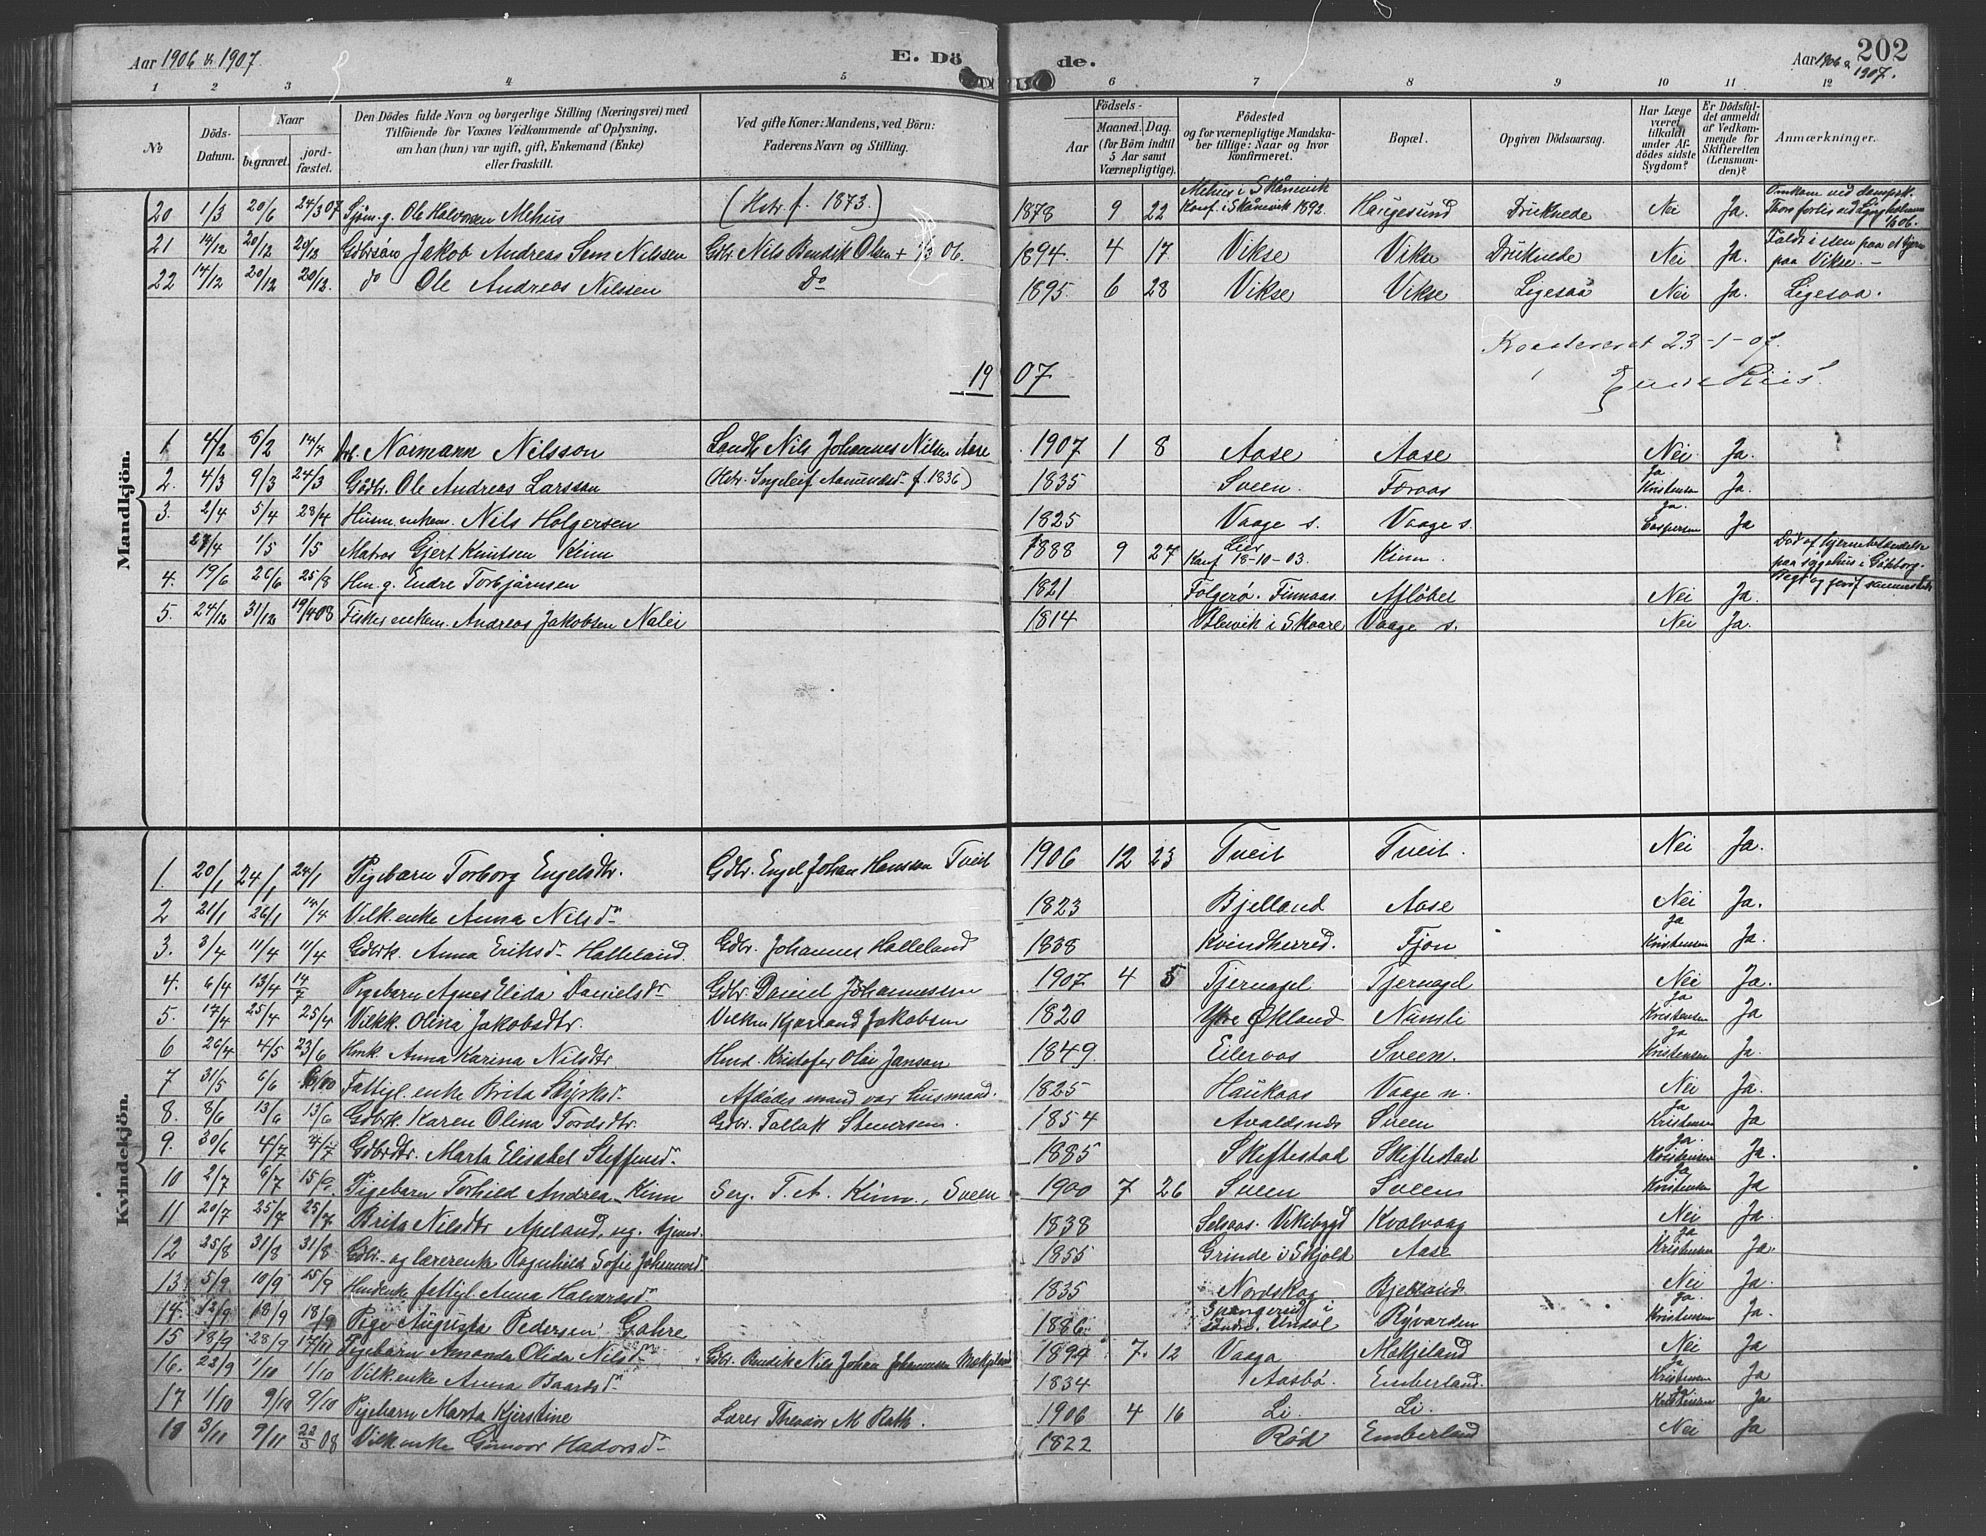 Aar 1906 & 1907. E. Döde. Aar 1906 & 1907. 202
1 2 3 4 5 6 7 8 9 10 11 12
№ Döds-Datum. Naar begravet. jordfæstet. Den Dödes fulde Navn og borgerlige Stilling (Næringsvei) med Tilföiende for Voxnes Vedkommende af Oplysning, om han (hun) var ugift, gift, Enkemand (Enke) eller fraskilt. Ved gifte Koner: Mandens, ved Börn: Faderens Navn og Stilling. Födsels- Aar Maaned. Dag. (for Börn indtil 5 Aar samt Værnepligtige). Födested og for værnepligtige Mandskaber tillige: Naar og hvor konfirmeret. Bopæl. Opgiven Dödsaarsag. Har Læge været tilkaldt under Afdödes sidste Sygdom? Er Dödsfaldet anmeldt af Vedkommende for Skifteretten (Lensmanden)? Anmærkninger.
Mandkjön.
20 1/3 20/6 24/3 07 Sjöm. g. Ole Halvorsen Mehus (Hstr f. 1873.) 1878 9 22 Mehus i Skånevik Konf. i Skånevik 1892. Haugesund Druknede Nei Ja. Omkom ved dampsk. Thors forlis ved
21 14/12 20/12 20/12 Gdbrsön Jakob Andreas Sem Nilssen Gdbr Nils Bendik Olsen 1894. 4 17 Vikse Vikse Druknede Nei Ja. Faldt i isen paa et tjern paa Vikse. -
22 14/12 20/12 20/12. do Ole Andreas Nilssen Do 1895. 6 28 Vikse Vikse Ligesaa Nei Ja. Ligesaa.
23-1-07.
1907
1 4/2 8/2 14/4 Normann Nilsson Landh. Nils Johannes Nilsen Aase 1907 1 8 Aase Aase Nei Ja.
2. 4/3 9/3 24/3 Gdbr. Ole Andreas Larsson 1835 Sveen. Færaas Ja Kristensen Ja.
3. 2/4 5/4 28/4 Husm. enkem. Nils Holgersen 1825 Vaage s. Vaage s. Ja. Caspersen Ja
27/4 1/5 1/5 Matros Gjert Knutsen Kinn 1888 9 27 Lier Konf 18-10-03. Kinn. Död af hjernebetændelse paa sygehus i Göteborg.
4. 19/6 26/6 25/8 Hm. g. Endre Torbjörnsen 1821 Folgerö. Finnaas Aflöbet Nei Ja.
5. 24/12 31/12 19/4 08 Fisker enkem. Andreas Jakobsen Nalei 1814 i Skaare Vaage s. Nei Ja.
Kvindekjön.
1. 20/1 24/1 24/1 Pigebarn Torborg Engelsdtr. Gdbr. Engel Johan Hansson Tveit 1906 12 23 Tveit Tveit. Nei Ja.
2 21/1 26/1 14/4 Vilk. enke Anna Nilsdr 1823 Bjelland Aase Nei Ja.
3. 3/4 11/4 11/4 Gdbrk. Anna Eriksdr Halleland. Gdbr. Johannes Halleland 1838 Kvindherred. Fjon Ja Kristensen Ja.
4. 6/4 13/4 14/7 Pigebarn Agnes Elida Danielsdr Gdbr. Daniel Johannessen 1907 4 5 Tjernagel Tjernagel Nei Ja.
5. 17/4 25/4 25/4 Vilkk. Olina Jakobsdtr. Vilkm Kjærand Jakobsen 1820 Ytre Ökland Numsli Ja Kristensen Ja
6 26/4 4/5 23/6 Hmk. Anna Karina Nilsdtr. Hmd. Kristofer Olai Jansson 1849. Eileraas Sveen. Ja Kristensen Ja.
7 31/5 6/6 Fattigl. enke Brita Afdödes mand var husmand. 1825 Haukaas Vaage n. Nei Ja.
8. 8/6 13/6 13/6 Gdbrk. Karen Olina Tordsdtr. Gdbr. Tollak 1854 Avaldsnes Sveen Ja Kristensen Ja
9. 30/6 4/7 4/7 Gdbrdtr. Marta Elisabet Steffensdr. 1885 Skiftestad Skiftestad Ja. Kristensen Ja.
10 2/7 6/7 15/9. Pigebarn Torhild Andrea Kinn Serg. T. A. Kinn, Sveen 1900 7 26 Sveen Sveen Ja Kristensen Ja
11 20/7 25/7 25/7 Brita Nilsdtr Apeland, ug. tjenes. 1838 Selsaas. Vikebygd Kvalvaag Nei Ja.
12 25/8 31/8 31/8 Gdbr. og lærerenke Ragnhild Sofie 1855 Grinde i Skjold Aase Ja Kristensen Ja.
13 5/9 10/9 25/9 Hmdenke fattigl. Anna Halvorsdr 1835 Nordskog Bjelland Nei Ja.
14. 12/9 18/9 18/9 Pige Augusta Pedersen Gahre 1886 i Söndre Undal Ryvarden Ja. Kristensen Ja.
15 18/9 28/9 17/11 Pigebarn Amanda Olida Nilsdr Gdbr. Bendik Nils Johan Johannessen Mækjeland 1894 7. 12 Vaaga Mækjeland Nei Ja
16. 22/9 1/10 1/10 Vilk. enke Anna Baardsdr 1834 Aasbö. Emberland. Ja Kristensen Ja
17 1/10 9/10 9/10 Pigebarn Marta Kjerstine Lærer Theodor M Rath. 1906 4 16 Li. Li. Ja Kristensen Ja
18 3/11 9/11 22/3 08 Vilk enke Gunvor Hadorsdr 1822 Röd Emberland Nei Ja